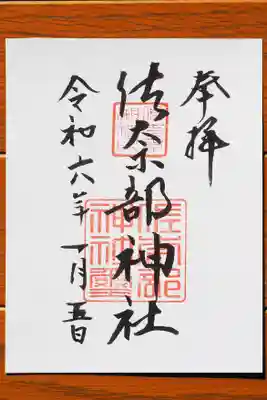 奉拝
佐奈部神社
令和六年一月五日
佐奈部
神社璽